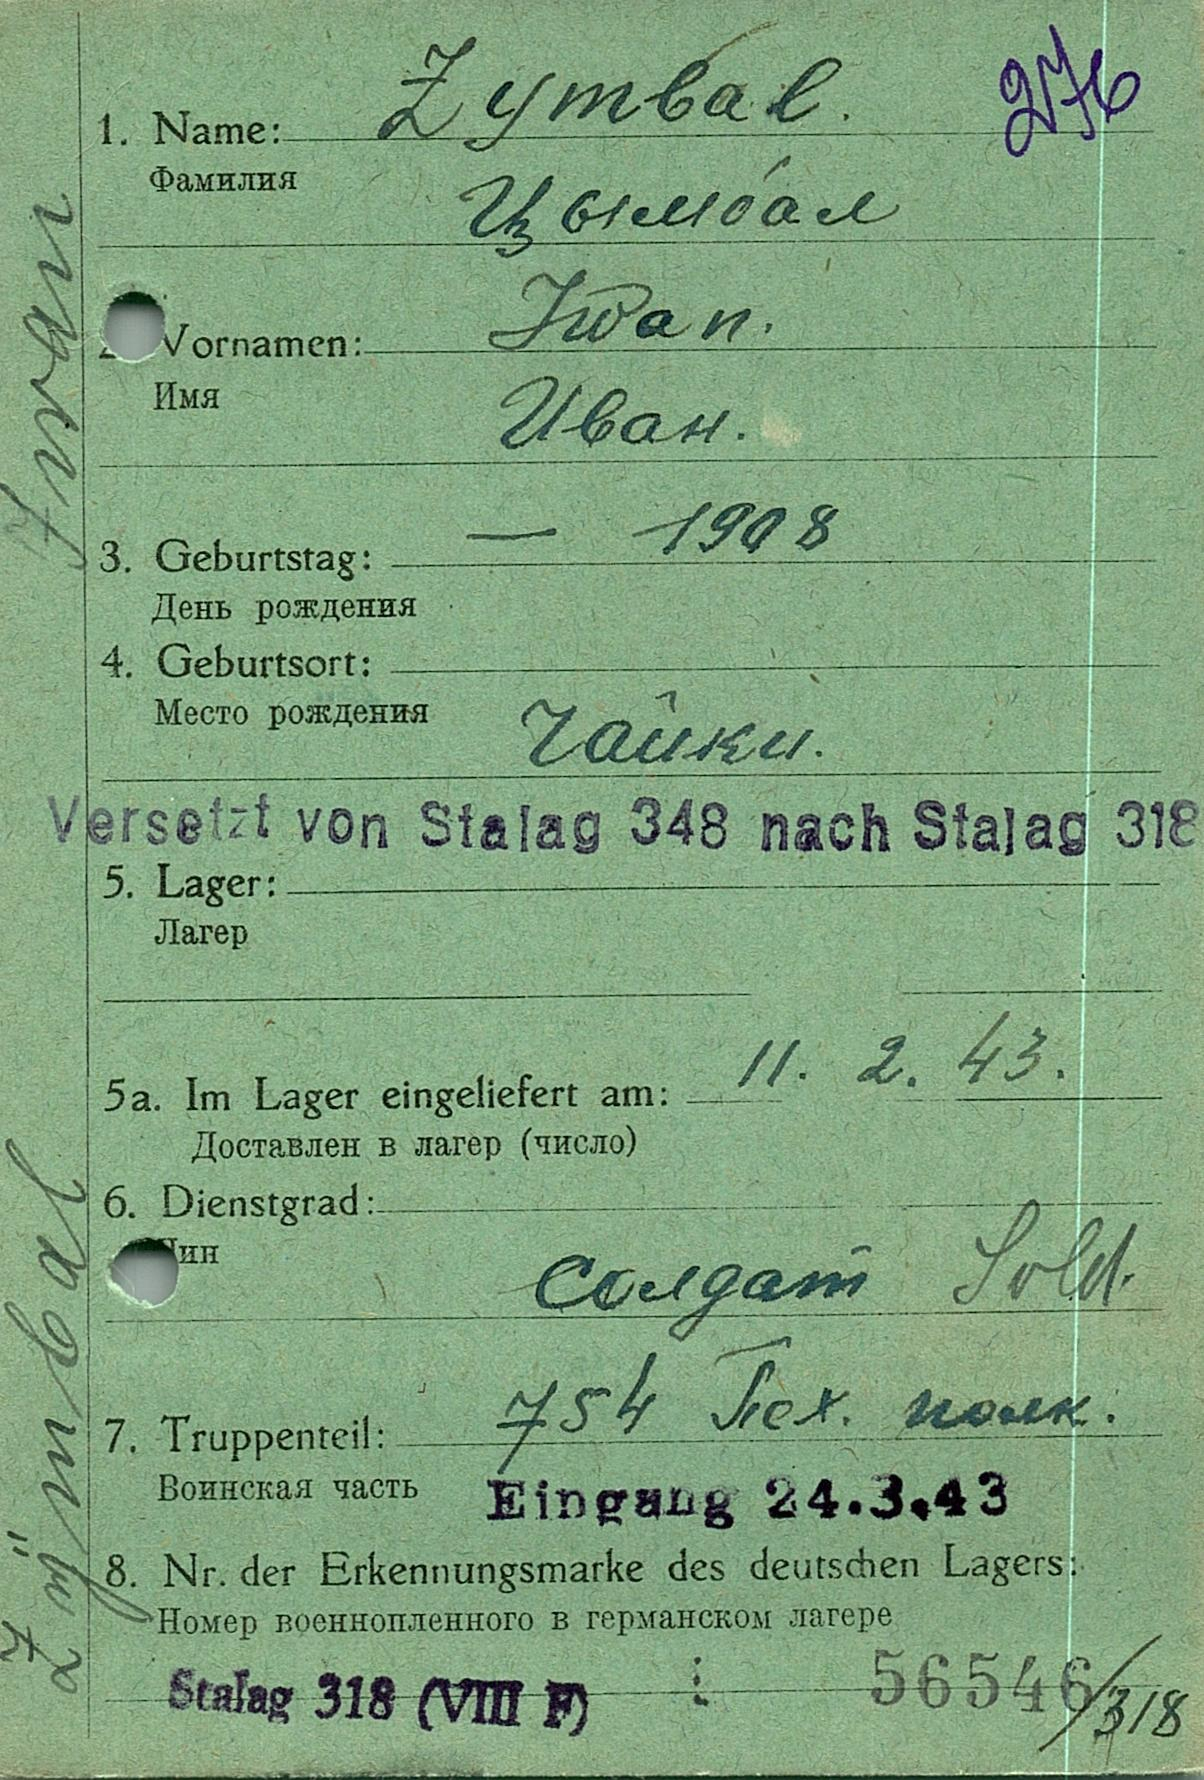 Zymbal.
276
1. Name:
Фамилия
Цымбал
2. Vornamen: Iwan.
Имя
Иван.
3. Geburtstag: — 1908
День рождения
4. Geburtsort:
Место рождения
Чайки.
Versetzt von Stalag 348 nach Stalag 318
5. Lager:
Лагер
5a. Im Lager eingeliefert am: 11. 2. 43.
Доставлен в лагер (число)
6. Dienstgrad:
Чин
Солдат Sold.
7. Truppenteil: 754 Пех. полк.
Воинская часть
Eingang 24.3.43
8. Nr. der Erkennungsmarke des deutschen Lagers:
Номер военнопленного в германском лагере
Stalag 318 (VIII F) : 56546/318
Zÿmbal Iwan